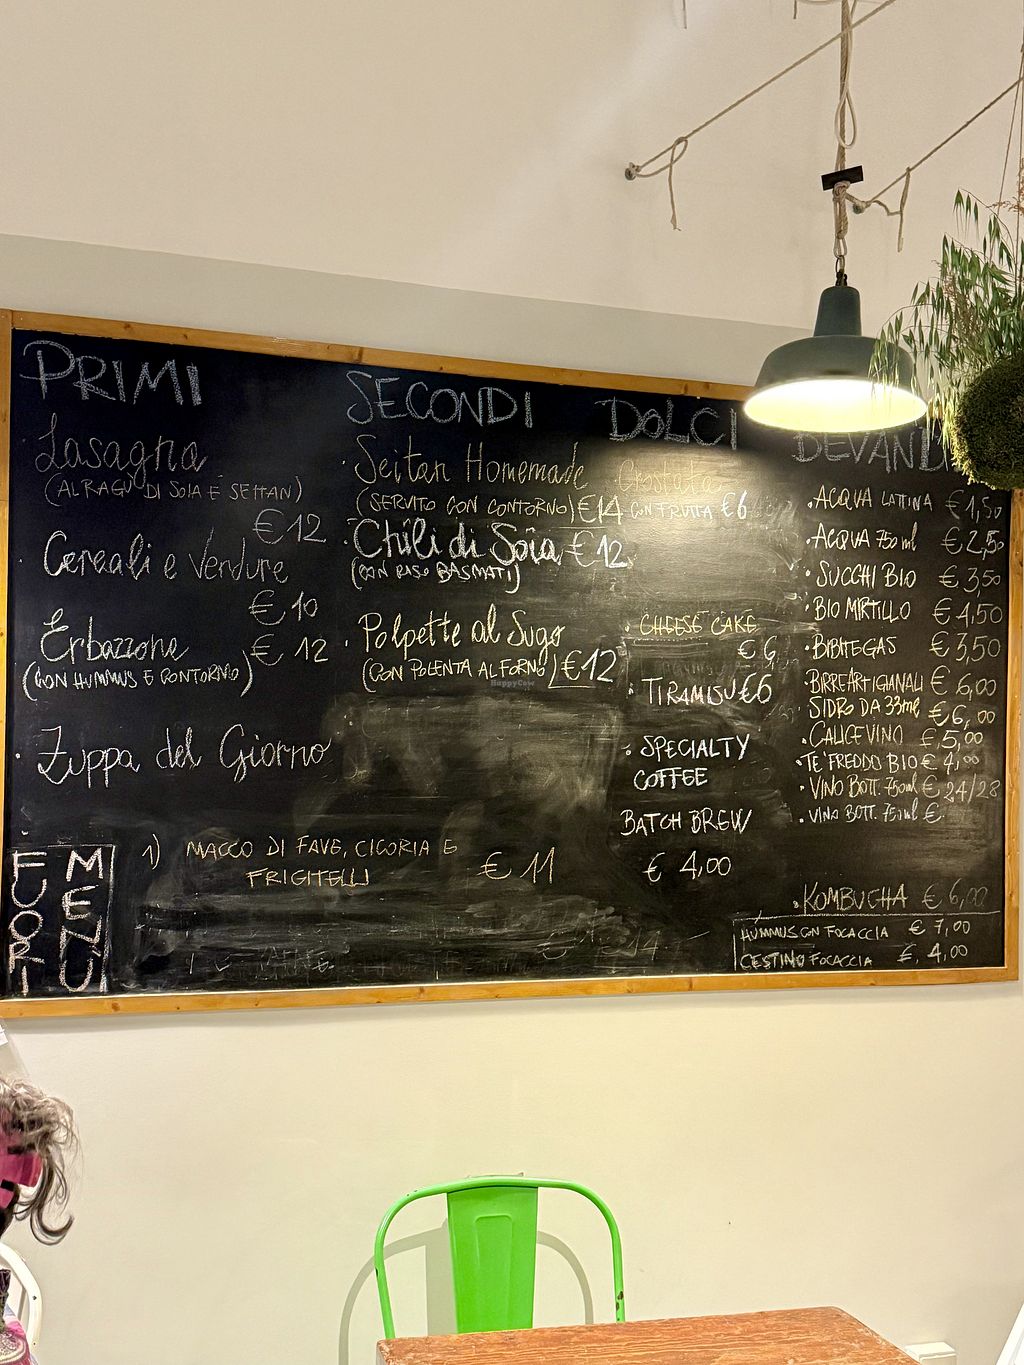 PRIMI
Lasagna
(AL RAGU' DI SOIA E SEITAN)
€ 12
Cereali e Verdure
€ 10
Erbazzone € 12
(CON HUMMUS E CONTORNO)
Zuppa del Giorno
SECONDI
Seitan Homemade
(SERVITO CON CONTORNO) €14
Chili di Soia €12
(CON RISO BASMATI)
Polpette al Sugo
(CON POLENTA AL FORNO) €12
DOLCI
Crostata
CON FRUTTA €6
CHEESE CAKE
€ 6
TIRAMISU €6
SPECIALTY
COFFEE
BATCH BREW
€ 4,00
BEVANDE
ACQUA LATTINA € 1,50
ACQUA 750 ml € 2,50
SUCCHI BIO € 3,50
BIO MIRTILLO € 4,50
BIBITE GAS € 3,50
BIRRE ARTIGIANALI € 6,00
SIDRO DA 33ml € 6,00
CALICE VINO € 5,00
TE' FREDDO BIO € 4,00
VINO BOTT. 750ml € 24/28
VINO BOTT. 750ml €
KOMBUCHA € 6,00
HUMMUS CON FOCACCIA € 7,00
CESTINO FOCACCIA € 4,00
FUORI MENÙ
1) MACCO DI FAVE, CICORIA E
FRIGITELLI € 11
HappyCow